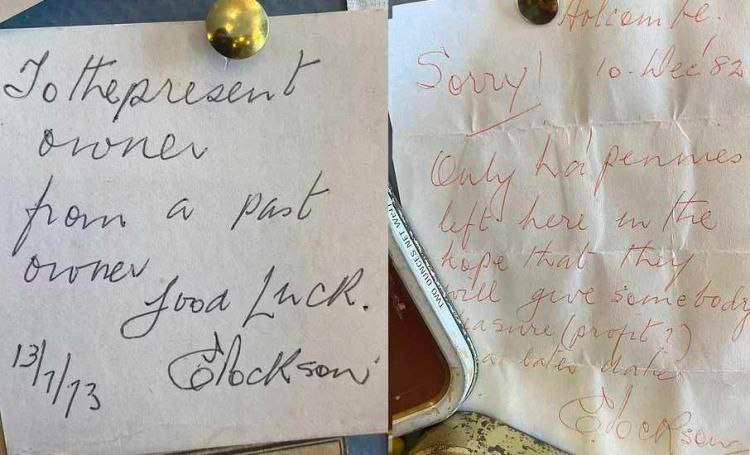 To the present
owner
from a past
owner
Good Luck.
13/1/73
Holcombe.
Sorry! 10 Dec '82
Only ha'pennies
left here in the
hope that they
will give somebody
(profit?)
a later date
TWO OUNCES NET WE